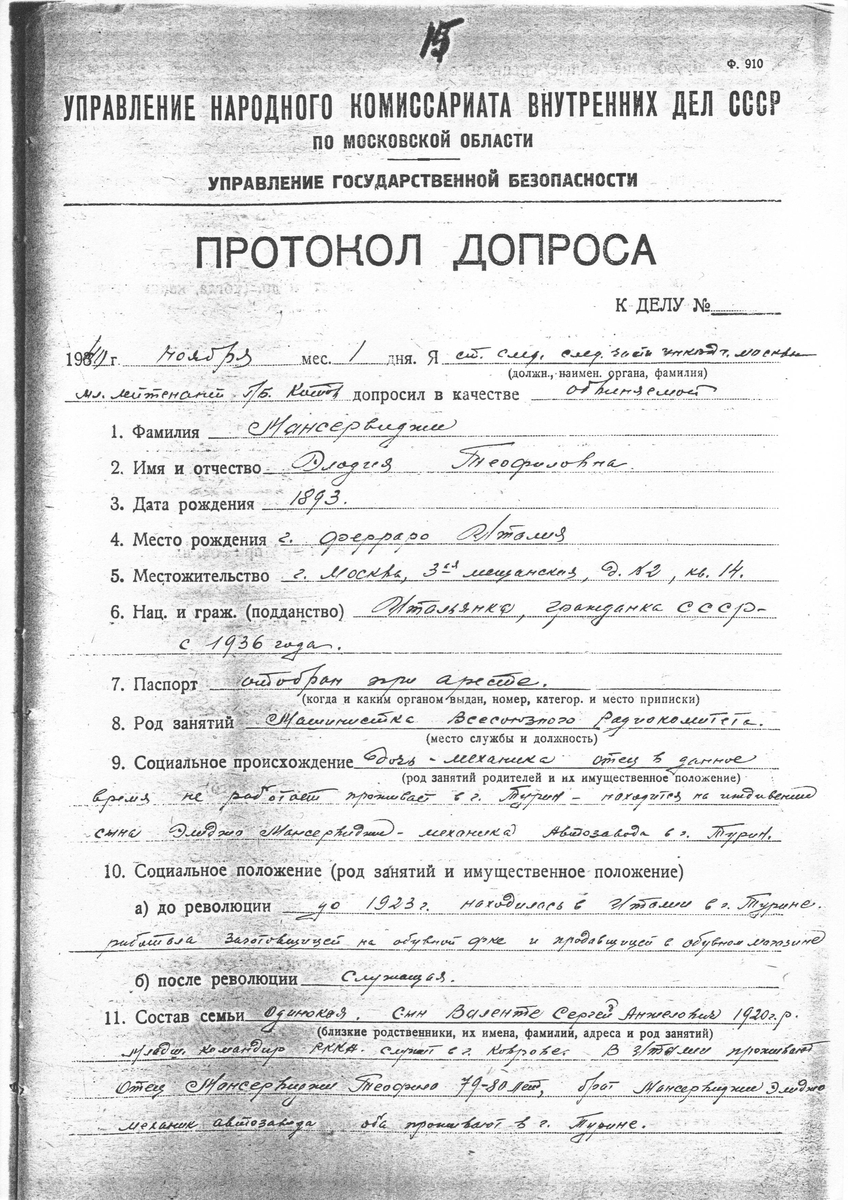 15
Ф. 910
УПРАВЛЕНИЕ НАРОДНОГО КОМИССАРИАТА ВНУТРЕННИХ ДЕЛ СССР
ПО МОСКОВСКОЙ ОБЛАСТИ
УПРАВЛЕНИЕ ГОСУДАРСТВЕННОЙ БЕЗОПАСНОСТИ
ПРОТОКОЛ ДОПРОСА
К ДЕЛУ №
1941 г. ноября мес. 1 дня. Я ст. след. след. части г. Москвы
(должн., наимен. органа, фамилия)
мл. лейтенант г/б. Китов допросил в качестве обвиняемой
1. Фамилия Мансервиджи
2. Имя и отчество Элодия Теофиловна
3. Дата рождения 1893.
4. Место рождения г. Ферраро Италия
5. Местожительство г. Москва, 3ая мещанская, д. 62, кв. 14.
6. Нац. и граж. (подданство) Итальянка, гражданка СССР-
с 1936 года.
7. Паспорт отобран при аресте.
(когда и каким органом выдан, номер, категор. и место приписки)
8. Род занятий Машинистка Всесоюзного Радиокомитета.
(место службы и должность)
9. Социальное происхождение дочь-механика отец в данное
(род занятий родителей и их имущественное положение)
время не работает проживает в г. Турин - находится на иждивении
сына Элиджо Мансервиджи - механика Автозавода в г. Турин.
10. Социальное положение (род занятий и имущественное положение)
а) до революции до 1923 г. находилась в Италии в г. Турине.
работала заготовщицей на обувной ф-ке и продавщицей в обувном магазине
б) после революции Служащая.
11. Состав семьи Одинокая. сын Валенте Сергей Анжелович 1920 г.р.
(близкие родственники, их имена, фамилии, адреса и род занятий)
младш. командир РККА. служит в г. Коврове. В Италии проживают
отец Мансервиджи Теофило 79-80 лет, брат Мансервиджи Элиджо
механик автозавода оба проживают в г. Турине.